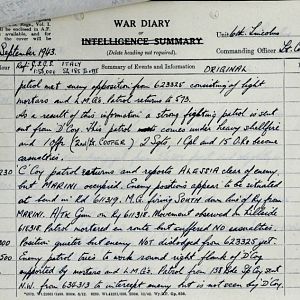 WAR DIARY
OR
INTELLIGENCE SUMMARY
(Delete heading not required).
Unit 6th Lincolns
Commanding Officer Lt. Co
September 1943.
ITALY
Summary of Events and Information
ORIGINAL
patrol met enemy opposition from 623325 consisting of light
mortars and L.M.Gs. Patrol returns at 573.
As a result of this information a strong fighting patrol is sent
out from D Coy. This patrol comes under heavy shellfire
and 1 Offr (2nd/Lt. COOPER) 2 Sgts, 1 Cpl and 15 O.Rs become
casualties.
230
'C' Coy patrol returns and reports ALESSIA clear of enemy
but MARINI occupied. Enemy positions appear to be situated
at bend in rd 611319. M.G. firing SOUTH down line of rly from
MARINI. A/Tk Gun on rly 611318. Movement observed in hillside
618318 Patrol mortared en route but suffered NO casualties.
300
Position quieter but enemy NOT dislodged from 623325 yet.
500
Enemy patrol tries to work round right flank of D Coy
supported by mortars and L.M.Gs. Patrol from 138 Bde Sp Coy sent
N.W. from 636313 to intercept enemy but is not seen by D Coy.